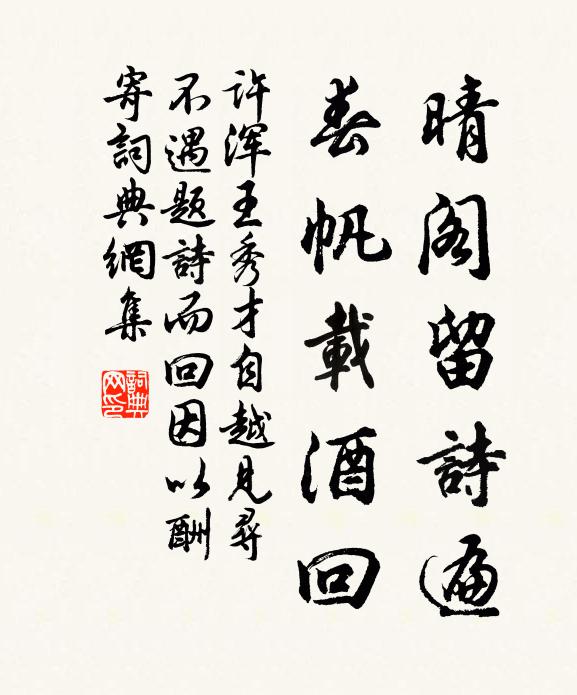 晴阁留詩遍
春帆載酒回
许浑王秀才自越见尋
不遇题詩而回因以酬
寄詞典網集
詞典网印